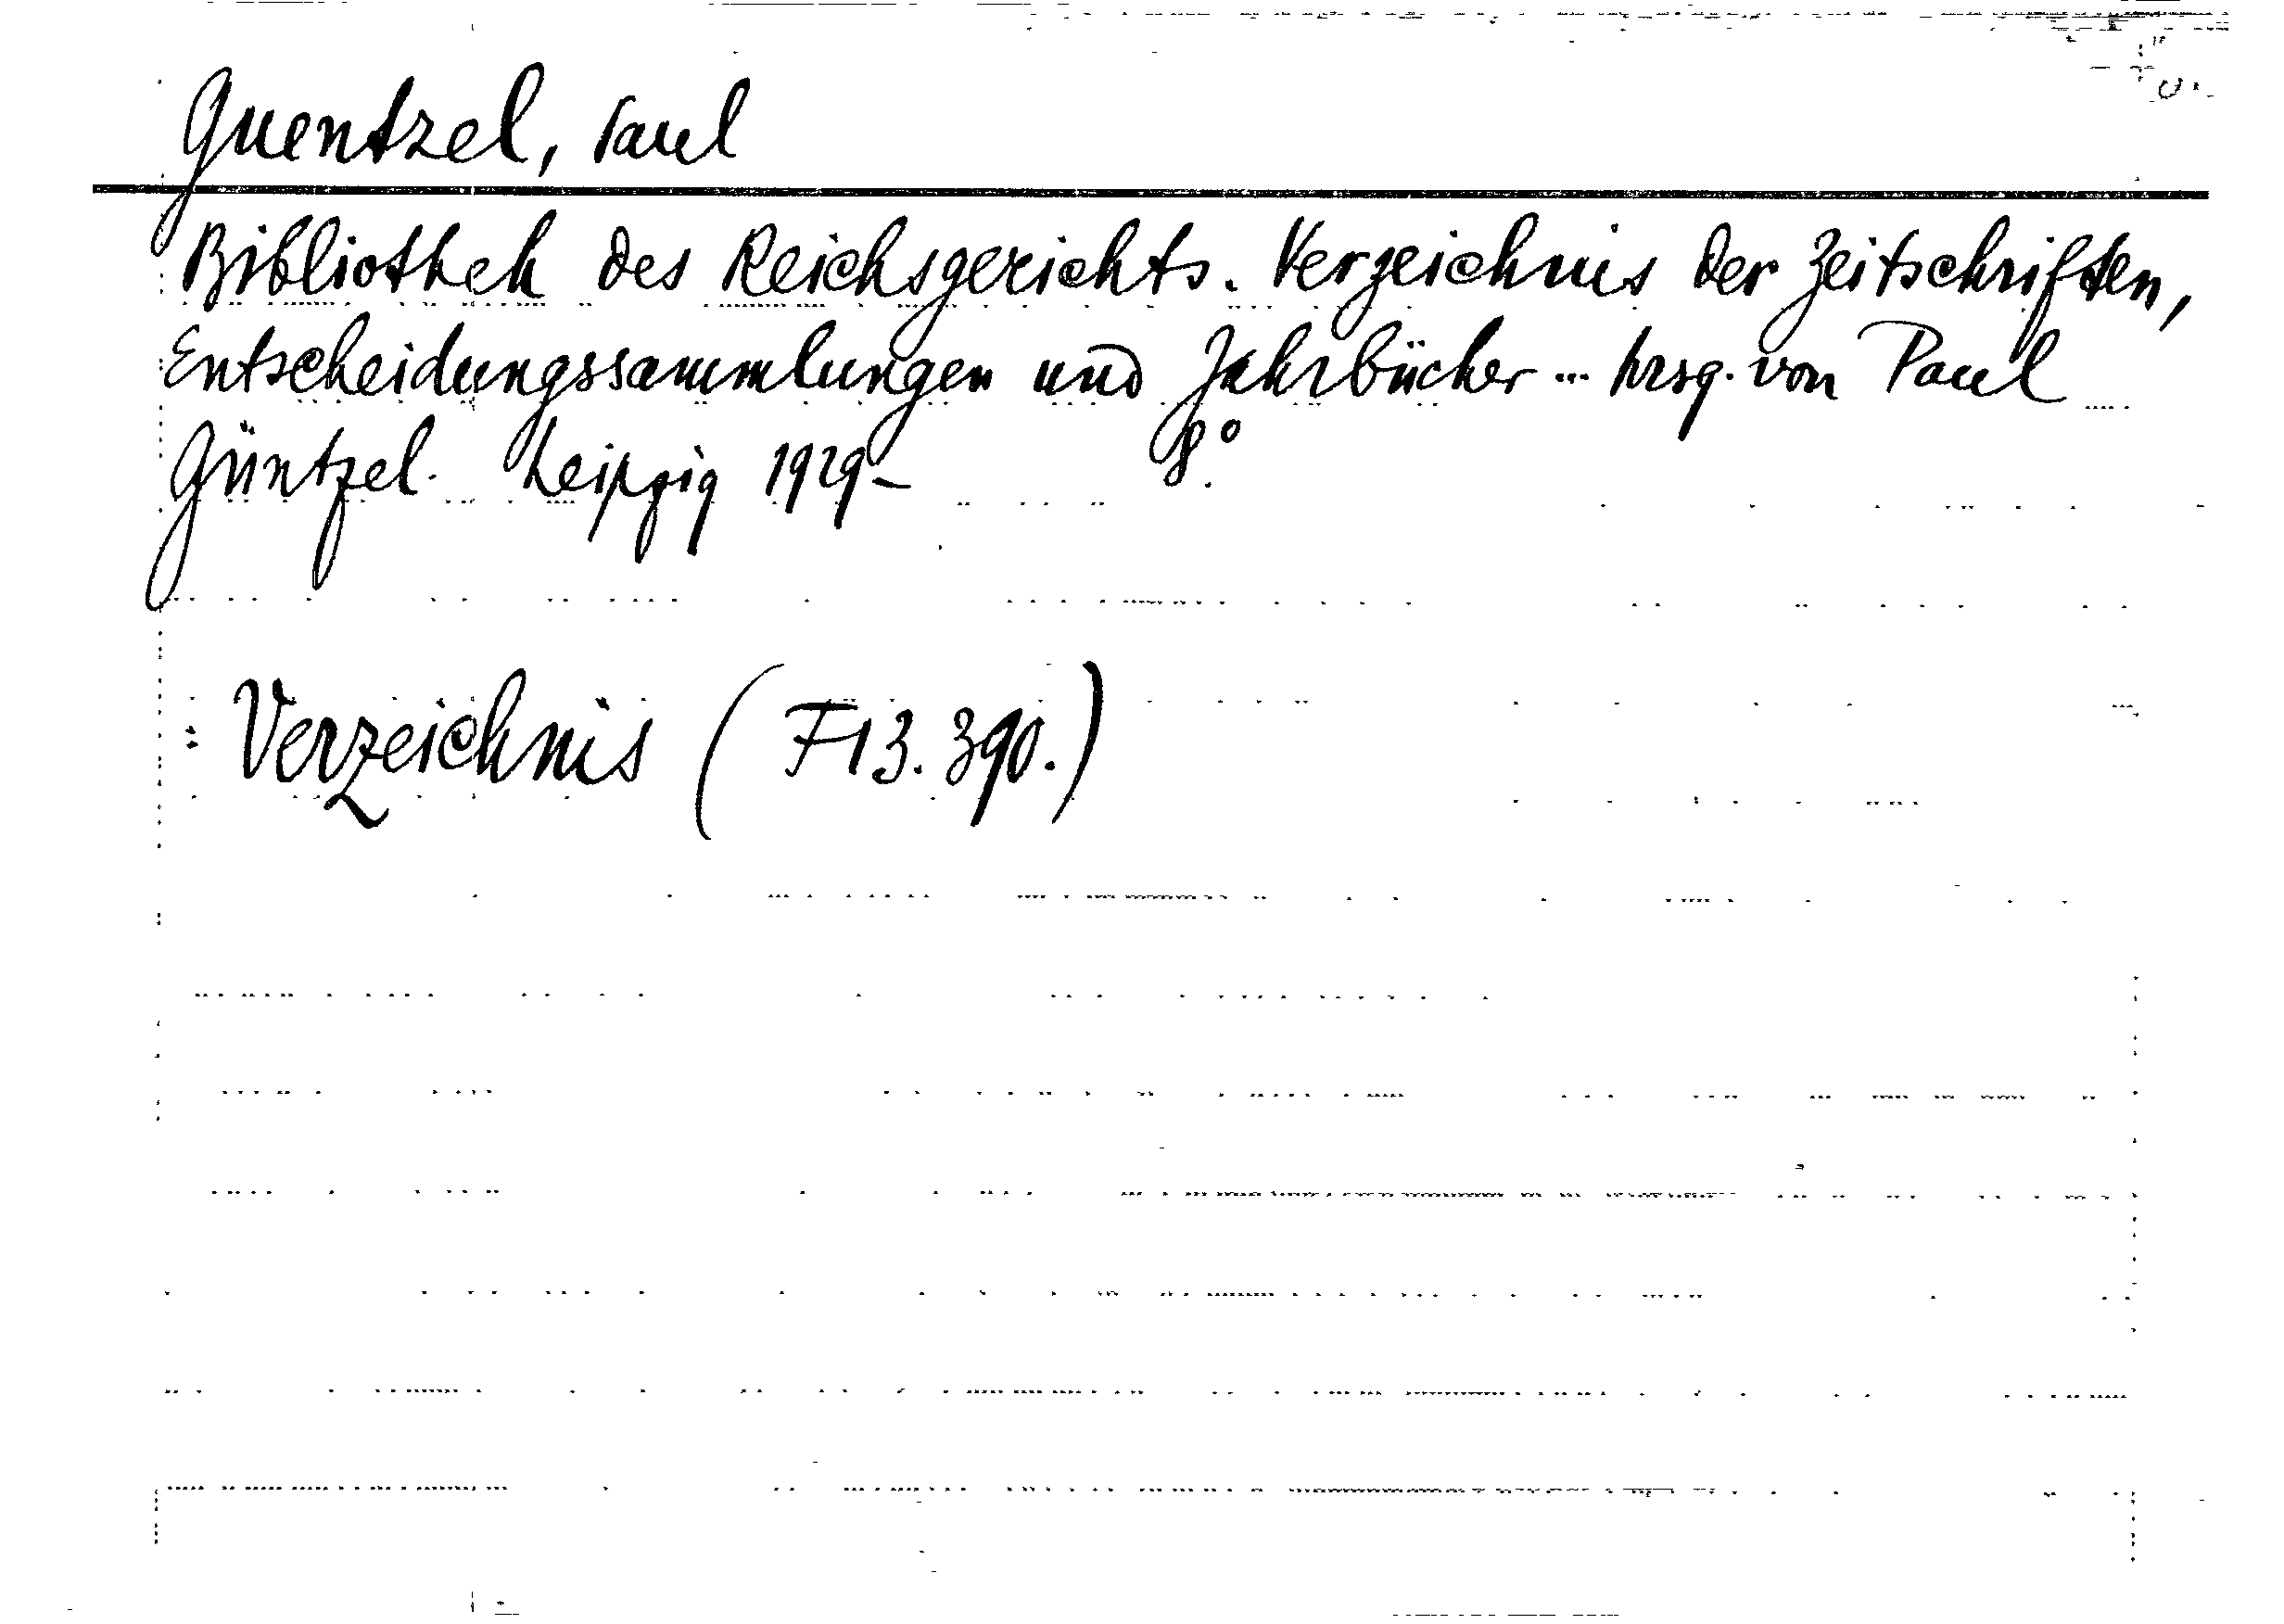 Guentzel, Paul
Bibliothek des Reichsgerichts. Verzeichnis der Zeitschriften,
Entscheidungssammlungen und Jahrbücher ... hrsg. von Paul
Güntzel. Leipzig 1929- 8°.
: Verzeichnis (F13.390.)